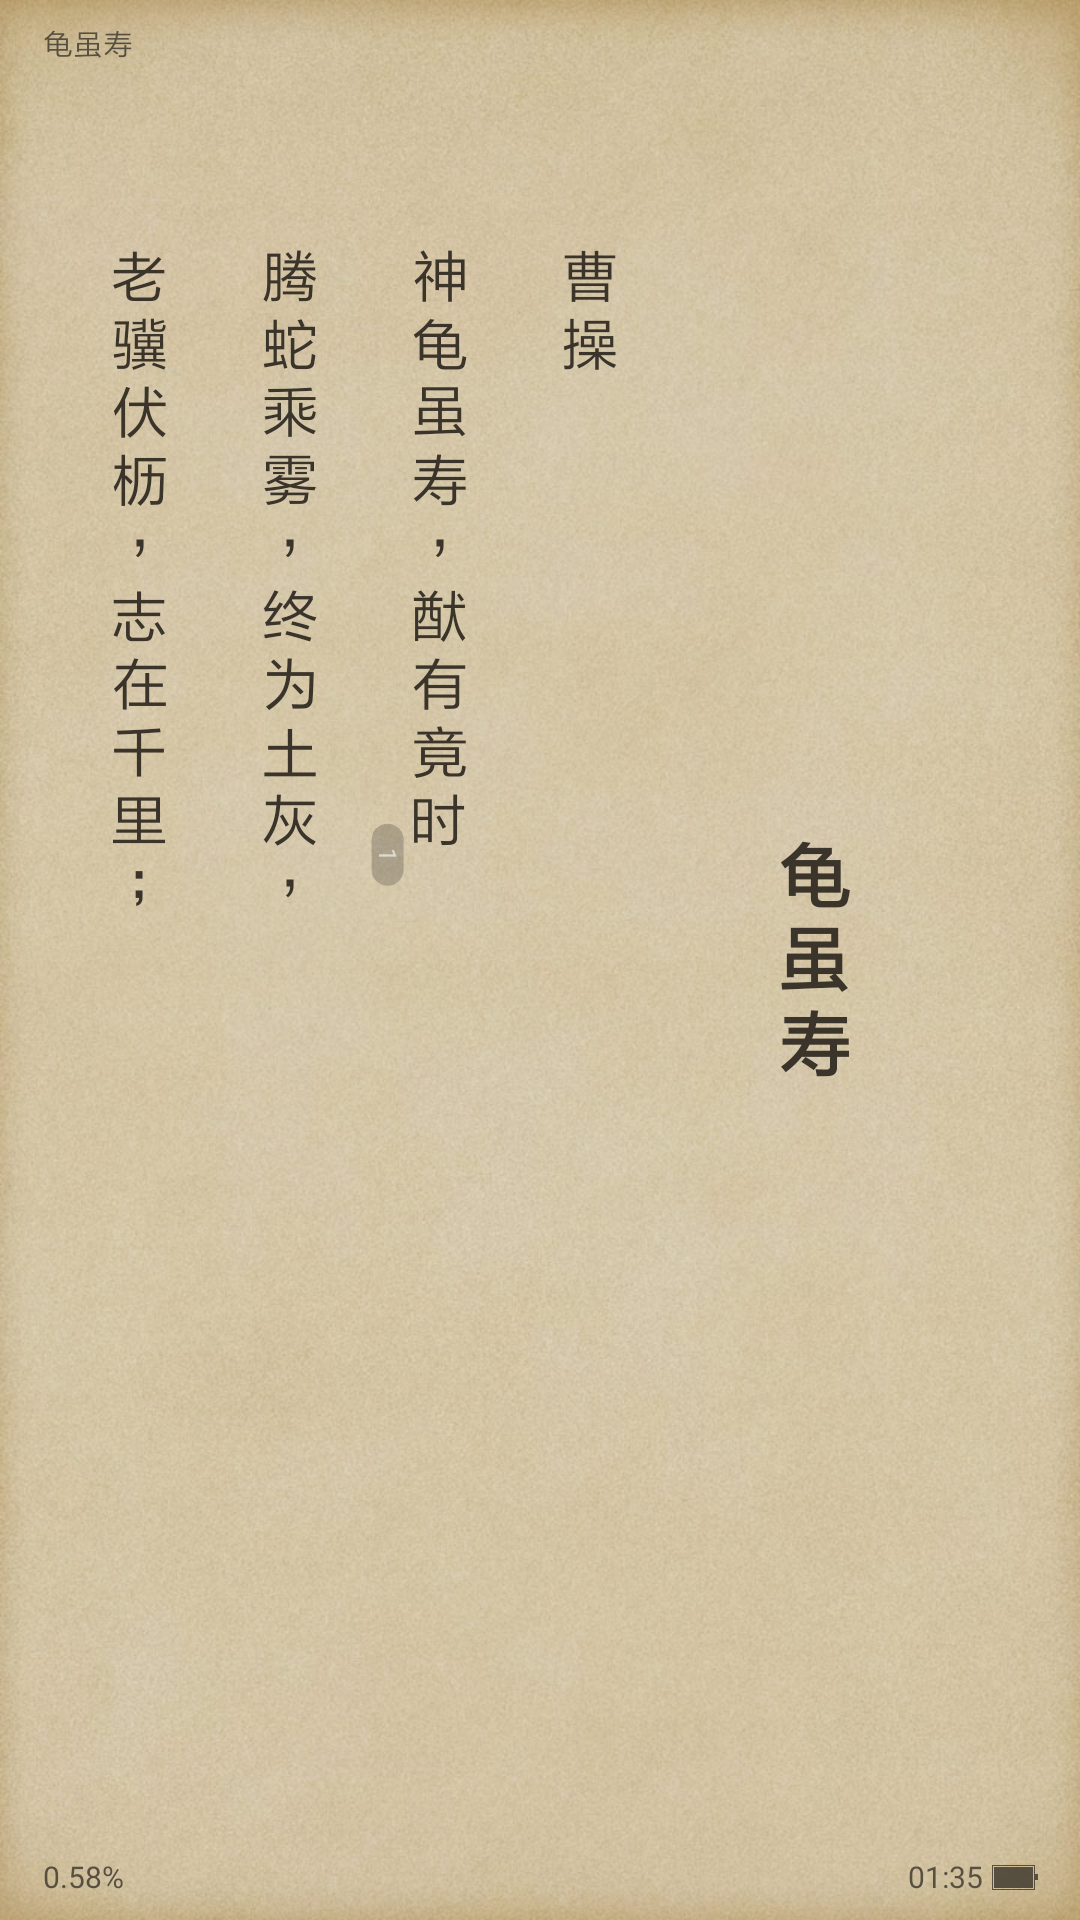 龟虽寿
龟虽寿
曹操
神龟虽寿，猷有竟时
1
腾蛇乘雾，终为土灰，
老骥伏枥，志在千里；
0.58%
01:35